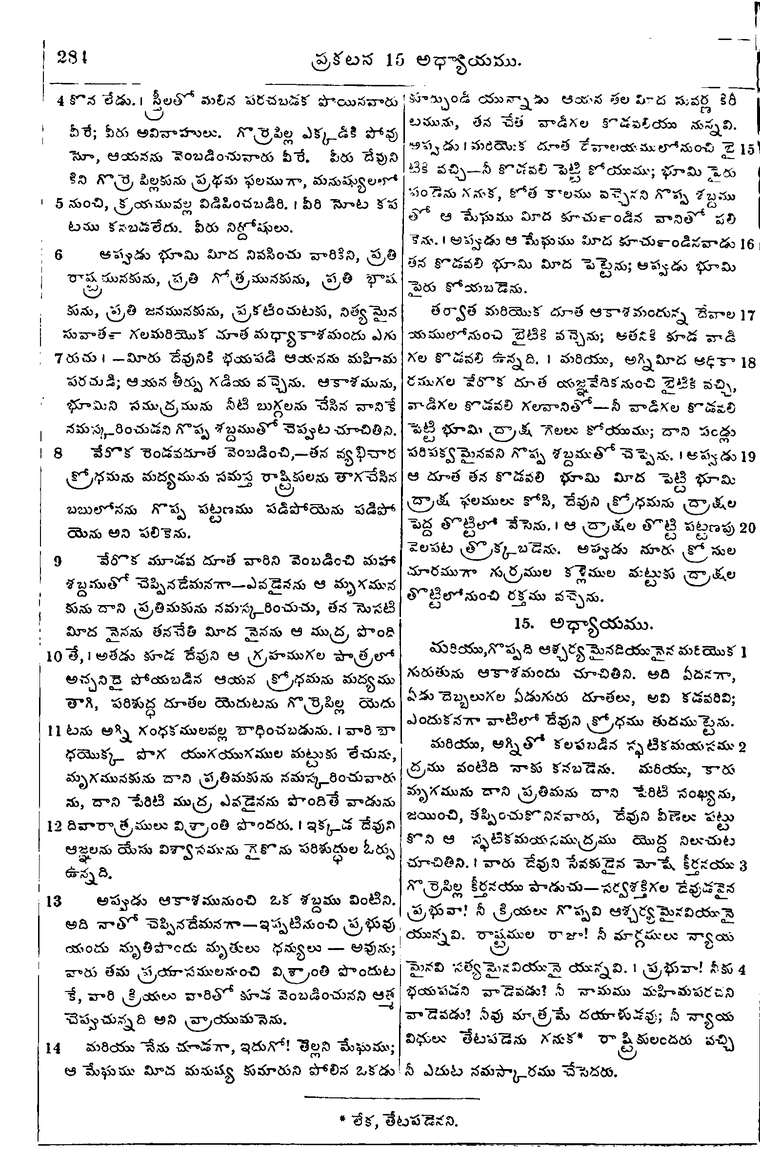 284
ప్రకటన 15 అధ్యాయము.
4 కొన లేదు. । స్త్రీలతో మలిన పరచబడక పోయినవారు
వీరే; వీరు అవివాహులు. గొర్రెపిల్ల ఎక్కడికి పోవు
నో, ఆయనను వెంబడించువారు వీరే. వీరు దేవుని
కిని గొర్రె పిల్లకును ప్రథమ ఫలముగా, మనుష్యులలో
5 నుంచి, క్రయమువల్ల విడిపించబడిరి. । వీరి నోట కప
టము కనబడలేదు. వీరు నిర్దోషులు.
6 అప్పుడు భూమి మీద నివసించు వారికిని, ప్రతి
రాష్ట్రమునకును, ప్రతి గోత్రమునకును, ప్రతి భాష
కును, ప్రతి జనమునకును, ప్రకటించుటకు, నిత్యమైన
సువార్త గలమరియొక దూత మధ్యాకాశమందు ఎగు
7 రుచు । —మీరు దేవునికి భయపడి ఆయనను మహిమ
పరచుడి; ఆయన తీర్పు గడియ వచ్చెను. ఆకాశమును,
భూమిని సముద్రమును నీటి బుగ్గలను చేసిన వానికే
నమస్కరించుడని గొప్ప శబ్దముతో చెప్పుట చూచితిని.
8 వేరొక రెండవదూత వెంబడించి,—తన వ్యభిచార
క్రోధమను మద్యమును సమస్త రాష్ట్రికులను తాగచేసిన
బబులోనను గొప్ప పట్టణము పడిపోయెను పడిపో
యెను అని పలికెను.
9 వేరొక మూడవ దూత వారిని వెంబడించి మహా
శబ్దముతో చెప్పినదేమనగా—ఎవడైనను ఆ మృగమున
కును దాని ప్రతిమకును నమస్కరించుచు, తన నొసటి
మీద నైనను తనచేతి మీద నైనను ఆ ముద్ర పొంది
10 తే, । అతడు కూడ దేవుని ఆ గ్రహముగల పాత్రలో
అచ్చనిదై పోయబడిన ఆయన క్రోధమను మద్యము
తాగి, పరిశుద్ధ దూతల యెదుటను గొర్రెపిల్ల యెదు
11 టను అగ్ని గంధకములవల్ల బాధించబడును. । వారి బా
ధయొక్క పొగ యుగయుగముల మట్టుకు లేచును,
మృగమునకును దాని ప్రతిమకును నమస్కరించువారు
ను, దాని పేరిటి ముద్ర ఎవడైనను పొందితే వాడును
12 దివారాత్రములు విశ్రాంతి పొందరు. । ఇక్కడ దేవుని
ఆజ్ఞలను యేసు విశ్వాసమును గైకొను పరిశుద్ధుల ఓర్పు
ఉన్నది.
13 అప్పుడు ఆకాశమునుంచి ఒక శబ్దము వింటిని.
అది నాతో చెప్పినదేమనగా—ఇప్పటినుంచి ప్రభువు
యందు మృతిపొందు మృతులు ధన్యులు — అవును;
వారు తమ ప్రయాసములనుంచి విశ్రాంతి పొందుట
కే, వారి క్రియలు వారితో కూడ వెంబడించునని ఆత్మ
చెప్పుచున్నది అని వ్రాయుమనెను.
14 మరియు నేను చూడగా, ఇదుగో! తెల్లని మేఘము;
ఆ మేఘము మీద మనుష్య కుమారుని పోలిన ఒకడు
కూర్చుండి యున్నాడు ఆయన తల మీద సువర్ణ కిరీ
టమును, తన చేత వాడిగల కొడవలియు నున్నవి.
అప్పుడు । మరియొక దూత దేవాలయములోనుంచి బై 15
టికి వచ్చి—నీ కొడవలి పెట్టి కోయుము; భూమి పైరు
పండెను గనుక, కోత కాలము వచ్చెనని గొప్ప శబ్దము
తో ఆ మేఘము మీద కూర్చుండిన వానితో పలి
కెను. । అప్పుడు ఆ మేఘము మీద కూర్చుండినవాడు 16
తన కొడవలి భూమి మీద పెట్టెను; అప్పుడు భూమి
పైరు కోయబడెను.
తర్వాత మరియొక దూత ఆకాశమందున్న దేవాల 17
యములోనుంచి బైటికి వచ్చెను; అతనికి కూడ వాడి
గల కొడవలి ఉన్నది. । మరియు, అగ్నిమీద అధికా 18
రముగల వేరొక దూత యజ్ఞవేదికనుంచి బైటికి వచ్చి,
వాడిగల కొడవలి గలవానితో—నీ వాడిగల కొడవలి
పెట్టి భూమి ద్రాక్ష గెలలు కోయుము; దాని పండ్లు
పరిపక్వమైనవని గొప్ప శబ్దముతో చెప్పెను. । అప్పుడు 19
ఆ దూత తన కొడవలి భూమి మీద పెట్టి భూమి
ద్రాక్ష ఫలములు కోసి, దేవుని క్రోధమను ద్రాక్షల
పెద్ద తొట్టిలో వేసెను. । ఆ ద్రాక్షల తొట్టి పట్టణపు 20
వెలపట త్రొక్కబడెను. అప్పుడు నూరు క్రోసుల
దూరముగా గుర్రముల కళ్లెముల మట్టుకు ద్రాక్షల
తొట్టిలోనుంచి రక్తము వచ్చెను.
15. అధ్యాయము.
మరియు,గొప్పది ఆశ్చర్యమైనదియునైన మరియొక 1
గురుతును ఆకాశమందు చూచితిని. అది ఏదనగా,
ఏడు దెబ్బలుగల ఏడుగురు దూతలు, అవి కడవరివి;
ఎందుకనగా వాటిలో దేవుని క్రోధము తుదముట్టెను.
మరియు, అగ్నితో కలపబడిన స్ఫటికమయసము 2
ద్రము వంటిది నాకు కనబడెను. మరియు, కారు
మృగమును దాని ప్రతిమను దాని పేరిటి సంఖ్యను,
జయించి, తప్పించుకొనినవారు, దేవుని వీణెలు పట్టు
కొని ఆ స్ఫటికమయసముద్రము యొద్ద నిలుచుట
చూచితిని. । వారు దేవుని సేవకుడైన మోషే కీర్తనయు 3
గొర్రెపిల్ల కీర్తనయు పాడుచు—సర్వశక్తిగల దేవుడవైన
ప్రభువా! నీ క్రియలు గొప్పవి ఆశ్చర్యమైనవియునై
యున్నవి. రాష్ట్రముల రాజా! నీ మార్గములు న్యాయ
మైనవి సత్యమైనవియునై యున్నవి. । ప్రభువా! నీకు 4
భయపడని వాడెవడు? నీ నామము మహిమపరచని
వాడెవడు? నీవు మాత్రమే దయాళుడవు; నీ న్యాయ
విధులు తేటపడెను గనుక* రాష్ట్రికులందరు వచ్చి
నీ ఎదుట నమస్కారము చేసెదరు.
* లేక, తేటపడెనని.